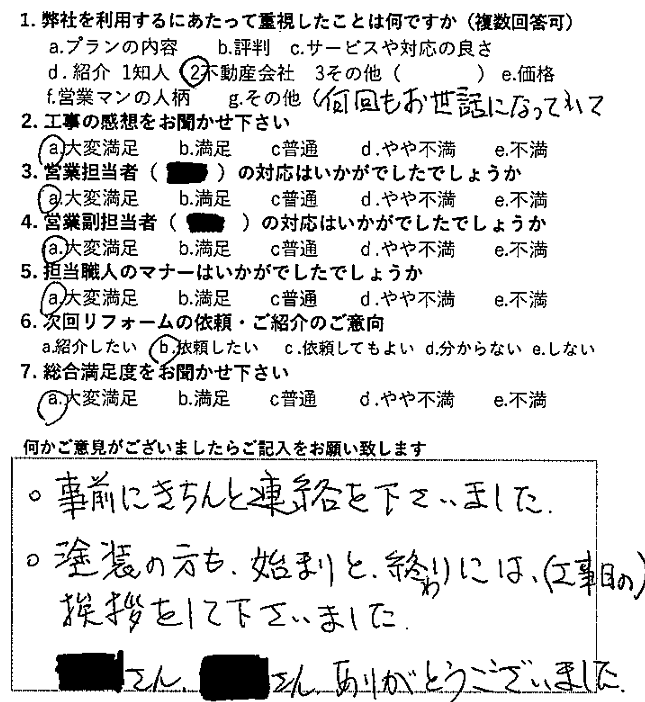 1. 弊社を利用するにあたって重視したことは何ですか（複数回答可）
a.プランの内容 b.評判 c.サービスや対応の良さ
d. 紹介 1知人 2不動産会社 3その他（ ） e.価格
f.営業マンの人柄 g.その他（何回もお世話になっていて
2. 工事の感想をお聞かせ下さい
a.大変満足 b.満足 c普通 d.やや不満 e.不満
3. 営業担当者（ ）の対応はいかがでしたでしょうか
a.大変満足 b.満足 c普通 d.やや不満 e.不満
4. 営業副担当者（ ）の対応はいかがでしたでしょうか
a.大変満足 b.満足 c普通 d.やや不満 e.不満
5. 担当職人のマナーはいかがでしたでしょうか
a.大変満足 b.満足 c普通 d.やや不満 e.不満
6. 次回リフォームの依頼・ご紹介のご意向
a.紹介したい b.依頼したい c.依頼してもよい d.分からない e.しない
7. 総合満足度をお聞かせ下さい
a.大変満足 b.満足 c普通 d.やや不満 e.不満
何かご意見がございましたらご記入をお願い致します
○ 事前にきちんと連絡を下さいました.
○ 塗装の方も、始まりと、終わりには、(工事日の)
挨拶をして下さいました.
さん、さん、ありがとうございました.